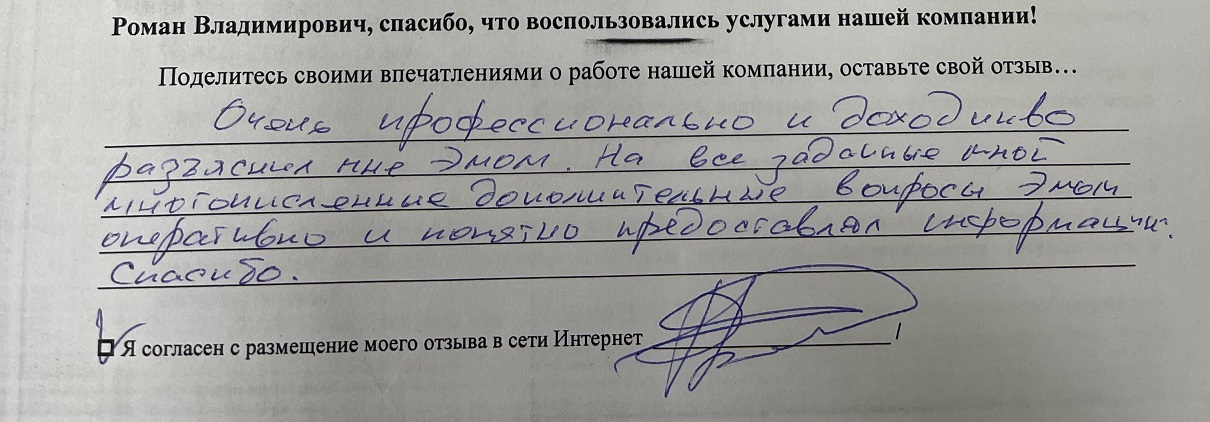 Роман Владимирович, спасибо, что воспользовались услугами нашей компании!
Поделитесь своими впечатлениями о работе нашей компании, оставьте свой отзыв…
Очень профессионально и доходчиво
разъяснил мне Эмом. На все заданные мной
многочисленные дополнительные вопросы Эмом
оперативно и понятно предоставлял информацию.
Спасибо.
Я согласен с размещение моего отзыва в сети Интернет /